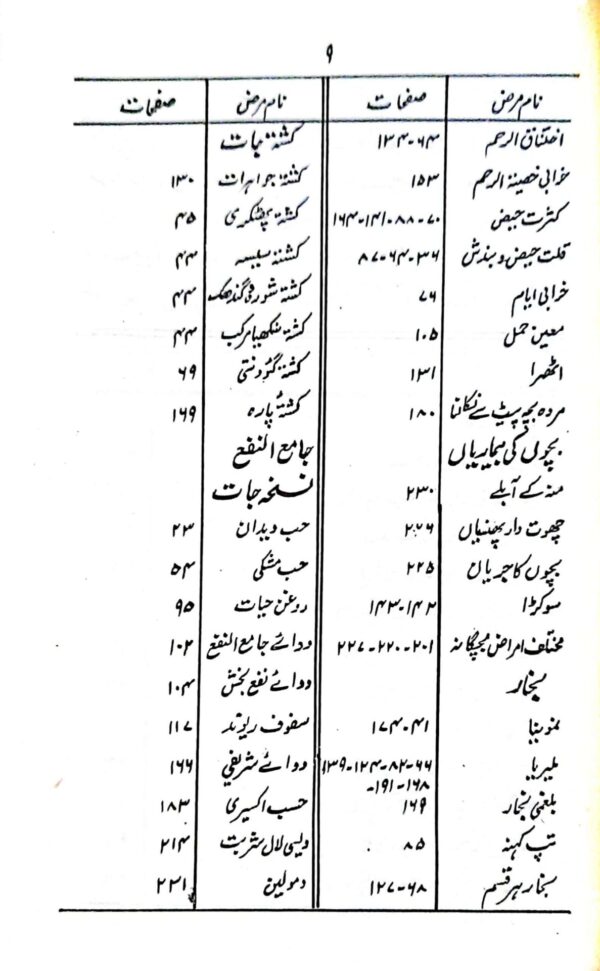 ۹
نام مرض صفحات
اختناق الرحم ۶۴-۱۳۴
خرابی خصیۃ الرحم ۱۵۳
کثرت حیض ۷۰-۸۸-۱۴۱-۱۶۴
قلت حیض و بندش ۳۶-۶۴-۸۷
خرابی ایام ۷۶
معین حمل ۱۰۵
اٹھرا ۱۳۱
مردہ بچہ پیٹ سے نکالنا ۱۸۰
بچوں کی بیماریاں
منہ کے آبلے ۲۳۰
چھوت دار پھنسیاں ۲۲۶
بچوں کا جریان ۲۲۵
سوکڑا ۱۴۲-۱۴۳
مختلف امراض بچگانہ ۲۰۱-۲۲۰-۲۲۷
بخار
نمونیا ۴۱-۱۷۴
ملیریا ۶۶-۸۲-۱۲۴-۱۳۹
۱۶۸-۱۹۱-
بلغمی بخار ۱۶۹
تپ کہنہ ۸۵
بخار ہر قسم ۶۸-۱۲۷
نام مرض صفحات
کشتہ جات
کشتہ جواہرات ۱۳۰
کشتہ پھٹکری ۴۵
کشتہ سیسہ ۴۴
کشتہ شورقی گندھک ۴۴
کشتہ سنکھیا مرکب ۴۴
کشتہ گؤدنتی ۶۹
کشتہ پارہ ۱۶۹
جامع النفع
نسخہ جات
حب دیدان ۲۳
حب مشکی ۵۴
روغن حیات ۹۵
دوائے جامع النفع ۱۰۲
دوائے نفع بخش ۱۰۴
سفوف ریوند ۱۱۷
دوائے شریفی ۱۶۶
حب اکسیری ۱۸۳
دیسی لال شربت ۲۱۴
دمولین ۲۳۱